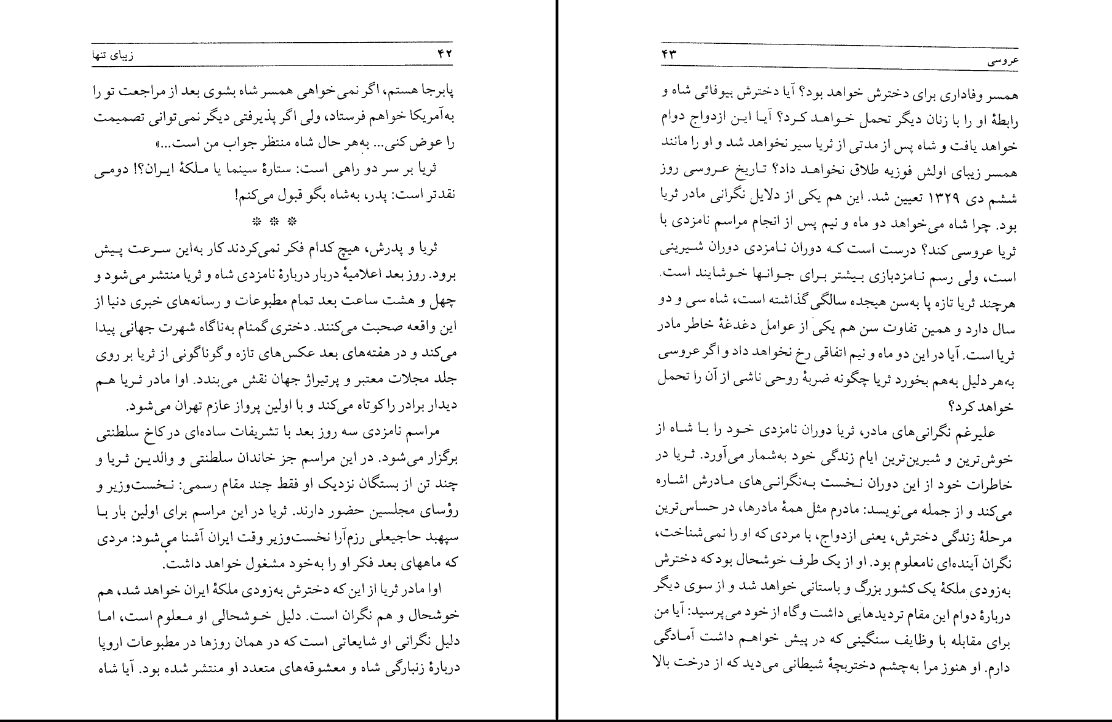 ۴۲ زیبای تنها
پابرجا هستم، اگر نمی‌خواهی همسر شاه بشوی بعد از مراجعت تو را
به‌آمریکا خواهم فرستاد، ولی اگر پذیرفتی دیگر نمی‌توانی تصمیمت
را عوض کنی... به‌هر حال شاه منتظر جواب من است...»
ثریا بر سر دو راهی است: ستارهٔ سینما یا ملکهٔ ایران؟! دومی
نقدتر است: پدر، به‌شاه بگو قبول می‌کنم!
* * *
ثریا و پدرش، هیچ کدام فکر نمی‌کردند کار به‌این سرعت پیش
برود. روز بعد اعلامیهٔ دربار دربارهٔ نامزدی شاه و ثریا منتشر می‌شود و
چهل و هشت ساعت بعد تمام مطبوعات و رسانه‌های خبری دنیا از
این واقعه صحبت می‌کنند. دختری گمنام به‌ناگاه شهرت جهانی پیدا
می‌کند و در هفته‌های بعد عکس‌های تازه و گوناگونی از ثریا بر روی
جلد مجلات معتبر و پرتیراژ جهان نقش می‌بندد. اوا مادر ثریا هم
دیدار برادر را کوتاه می‌کند و با اولین پرواز عازم تهران می‌شود.
مراسم نامزدی سه روز بعد با تشریفات ساده‌ای در کاخ سلطنتی
برگزار می‌شود. در این مراسم جز خاندان سلطنتی و والدین ثریا و
چند تن از بستگان نزدیک او فقط چند مقام رسمی: نخست‌وزیر و
رؤسای مجلسین حضور دارند. ثریا در این مراسم برای اولین بار با
سپهبد حاجیعلی رزم‌آرا نخست‌وزیر وقت ایران آشنا می‌شود: مردی
که ماههای بعد فکر او را به‌خود مشغول خواهد داشت.
اوا مادر ثریا از این که دخترش به‌زودی ملکهٔ ایران خواهد شد، هم
خوشحال و هم نگران است. دلیل خوشحالی او معلوم است، اما
دلیل نگرانی او شایعاتی است که در همان روزها در مطبوعات اروپا
دربارهٔ زنبارگی شاه و معشوقه‌های متعدد او منتشر شده بود. آیا شاه
عروسی ۴۳
همسر وفاداری برای دخترش خواهد بود؟ آیا دخترش بیوفائی شاه و
رابطهٔ او را با زنان دیگر تحمل خواهد کرد؟ آیا این ازدواج دوام
خواهد یافت و شاه پس از مدتی از ثریا سیر نخواهد شد و او را مانند
همسر زیبای اولش فوزیه طلاق نخواهد داد؟ تاریخ عروسی روز
ششم دی ۱۳۲۹ تعیین شد. این هم یکی از دلایل نگرانی مادر ثریا
بود. چرا شاه می‌خواهد دو ماه و نیم پس از انجام مراسم نامزدی با
ثریا عروسی کند؟ درست است که دوران نامزدی دوران شیرینی
است، ولی رسم نامزدبازی بیشتر برای جوانها خوشایند است.
هرچند ثریا تازه پا به‌سن هیجده سالگی گذاشته است، شاه سی و دو
سال دارد و همین تفاوت سن هم یکی از عوامل دغدغهٔ خاطر مادر
ثریا است. آیا در این دو ماه و نیم اتفاقی رخ نخواهد داد و اگر عروسی
به‌هر دلیل به‌هم بخورد ثریا چگونه ضربهٔ روحی ناشی از آن را تحمل
خواهد کرد؟
علیرغم نگرانی‌های مادر، ثریا دوران نامزدی خود را با شاه از
خوش‌ترین و شیرین‌ترین ایام زندگی خود به‌شمار می‌آورد. ثریا در
خاطرات خود از این دوران نخست به‌نگرانی‌های مادرش اشاره
می‌کند و از جمله می‌نویسد: مادرم مثل همهٔ مادرها، در حساس‌ترین
مرحلهٔ زندگی دخترش، یعنی ازدواج، با مردی که او را نمی‌شناخت،
نگران آینده‌ای نامعلوم بود. او از یک طرف خوشحال بود که دخترش
به‌زودی ملکهٔ یک کشور بزرگ و باستانی خواهد شد و از سوی دیگر
دربارهٔ دوام این مقام تردیدهایی داشت و گاه از خود می‌پرسید: آیا من
برای مقابله با وظایف سنگینی که در پیش خواهم داشت آمادگی
دارم. او هنوز مرا به‌چشم دختربچهٔ شیطانی می‌دید که از درخت بالا